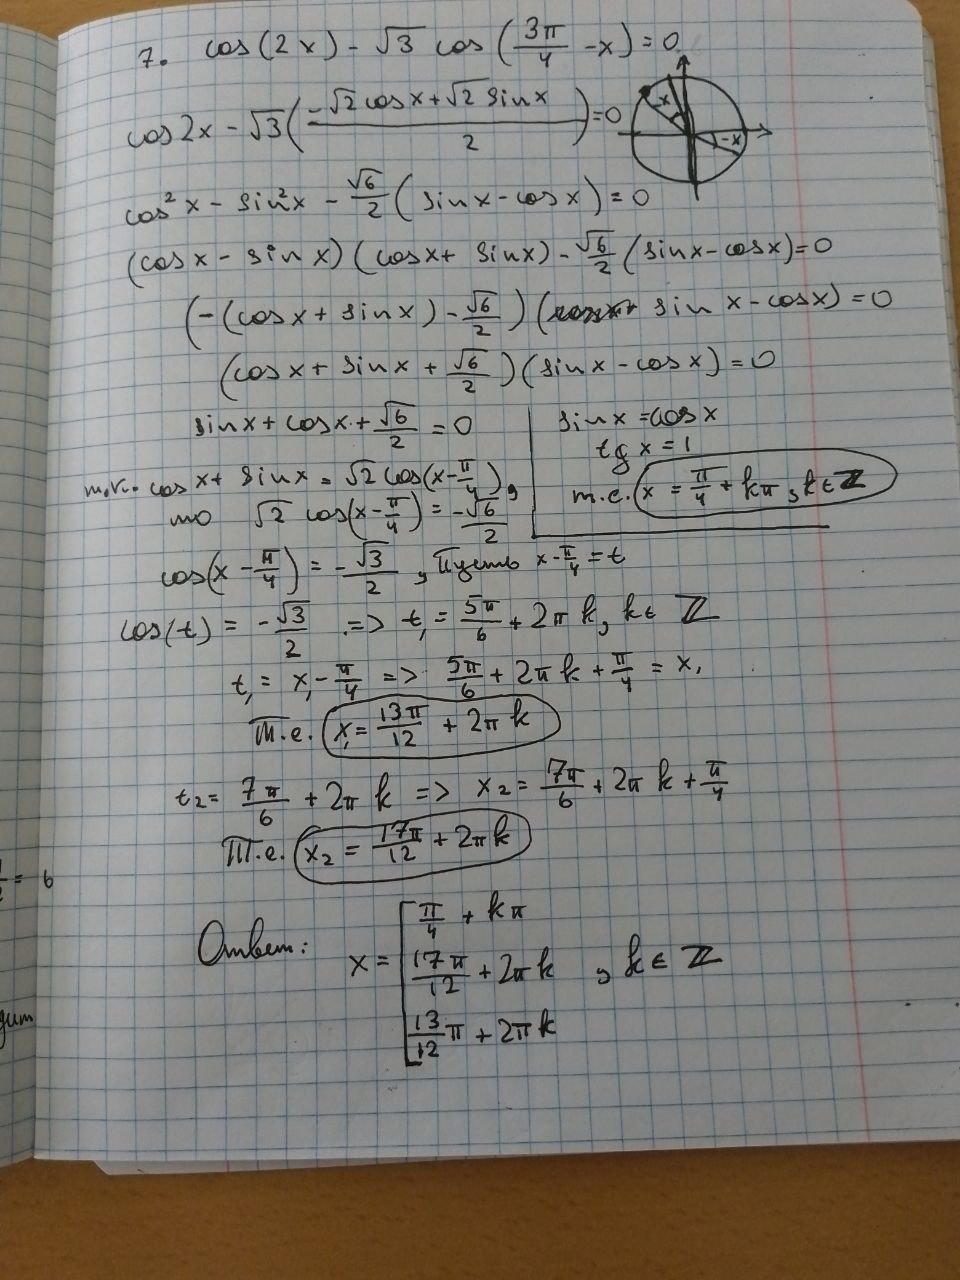 7. cos(2x) - √3 cos(3π/4 - x) = 0
x
-x
cos2x - √3((-√2cosx + √2 sinx)/2) = 0
cos²x - sin²x - √6/2 (sinx - cosx) = 0
(cosx - sinx)(cosx + sinx) - √6/2 (sinx - cosx) = 0
(-(cosx + sinx) - √6/2)(sinx - cosx) = 0
(cosx + sinx + √6/2)(sinx - cosx) = 0
sinx + cosx + √6/2 = 0
т.к. cosx + sinx = √2 cos(x - π/4),
то √2 cos(x - π/4) = -√6/2
sinx = cosx
tg x = 1
т.е. x = π/4 + kπ, k ∈ Z
cos(x - π/4) = -√3/2, Пусть x - π/4 = t
cos(t) = -√3/2 => t₁ = 5π/6 + 2πk, k ∈ Z
t₁ = x₁ - π/4 => 5π/6 + 2πk + π/4 = x₁
Т.е. x₁ = 13π/12 + 2πk
t₂ = 7π/6 + 2πk => x₂ = 7π/6 + 2πk + π/4
Т.е. x₂ = 17π/12 + 2πk
Ответ: x = [ π/4 + kπ
17π/12 + 2πk , k ∈ Z
13/12 π + 2πk
= 6